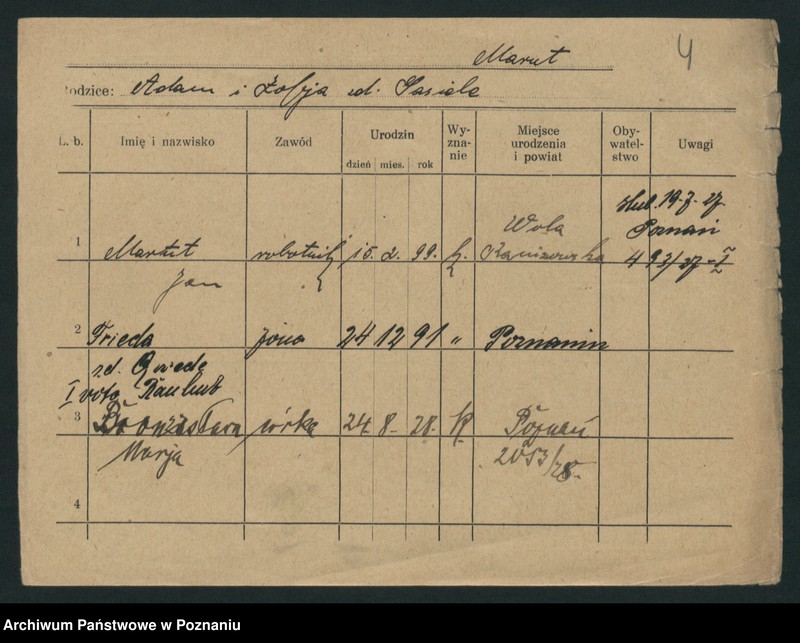 Marut
4
Rodzice: Adam i Zofja zd. Gasiela
L. b. Imię i nazwisko Zawód Urodzin Wy-zna-nie Miejsce urodzenia i powiat Oby-watel-stwo Uwagi
dzień mies. rok
ślub. 19.7.27.
Poznań
493/27-I
Wola
1 Marut robotnik 15. 2. 99. k.
Jan
2 Frieda żona 24 12 91 " Poznaniu
I voto
3 Bronisława córka 24. 8. 28. k Poznań
Marja 2053/28.
4
Archiwum Państwowe w Poznaniu